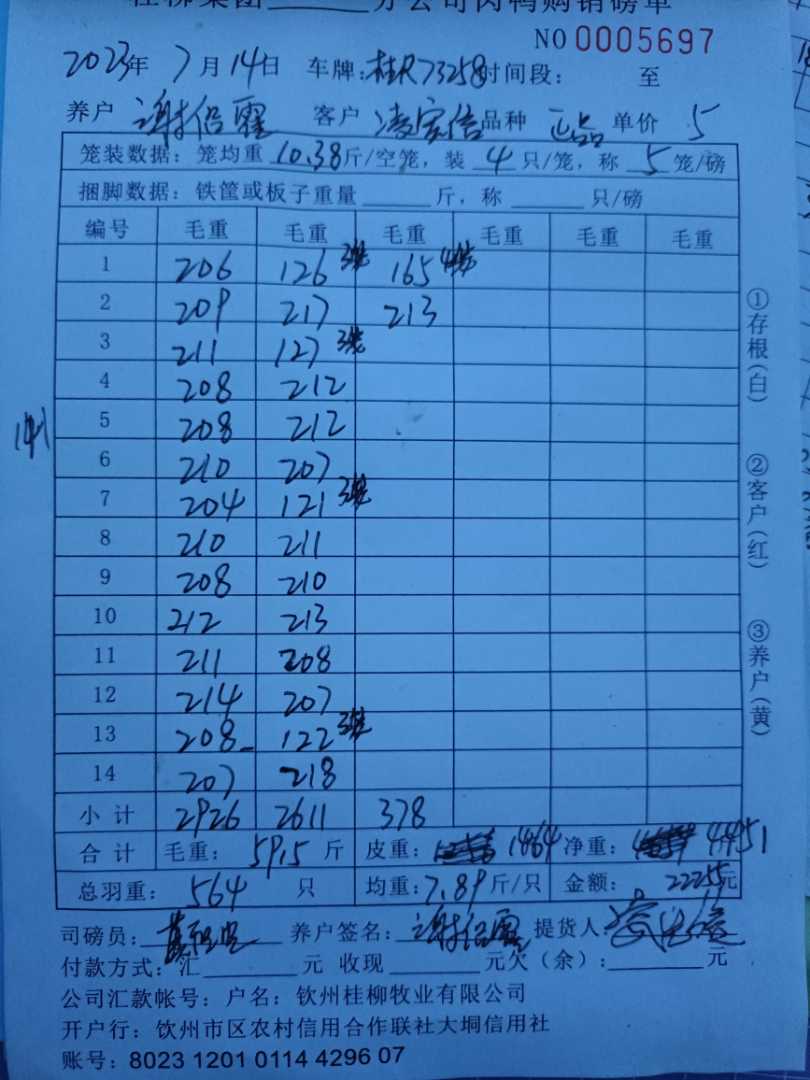 桂柳集团______分公司肉鸭购销磅单
NO 0005697
2023年 7月14日 车牌:桂R73258 时间段: 至
养户 谢绍霏 客户 凌宗信 品种 正品 单价 5
笼装数据:笼均重 10.38斤/空笼,装 4 只/笼,称 5 笼/磅
捆脚数据:铁筐或板子重量______斤,称______只/磅
编号 毛重 毛重 毛重 毛重 毛重 毛重
1 206 126 3笼 165 4笼
2 209 217 213
3 211 127 3笼
4 208 212
5 208 212
6 210 207
7 204 121 3笼
8 210 211
9 208 210
10 212 213
11 211 208
12 214 207
13 208 122 3笼
14 207 218
小计 2926 2611 378
合计 毛重: 5915 斤 皮重: 1464 净重: 4451
总羽重: 564 只 均重:7.89斤/只 金额: 22255元
141
①存根(白)
②客户(红)
③养户(黄)
司磅员: 养户签名: 谢绍霏 提货人:
付款方式:汇______元 收现______元欠(余):______元
公司汇款帐号:户名:钦州桂柳牧业有限公司
开户行:钦州市区农村信用合作联社大垌信用社
账号:8023 1201 0114 4296 07